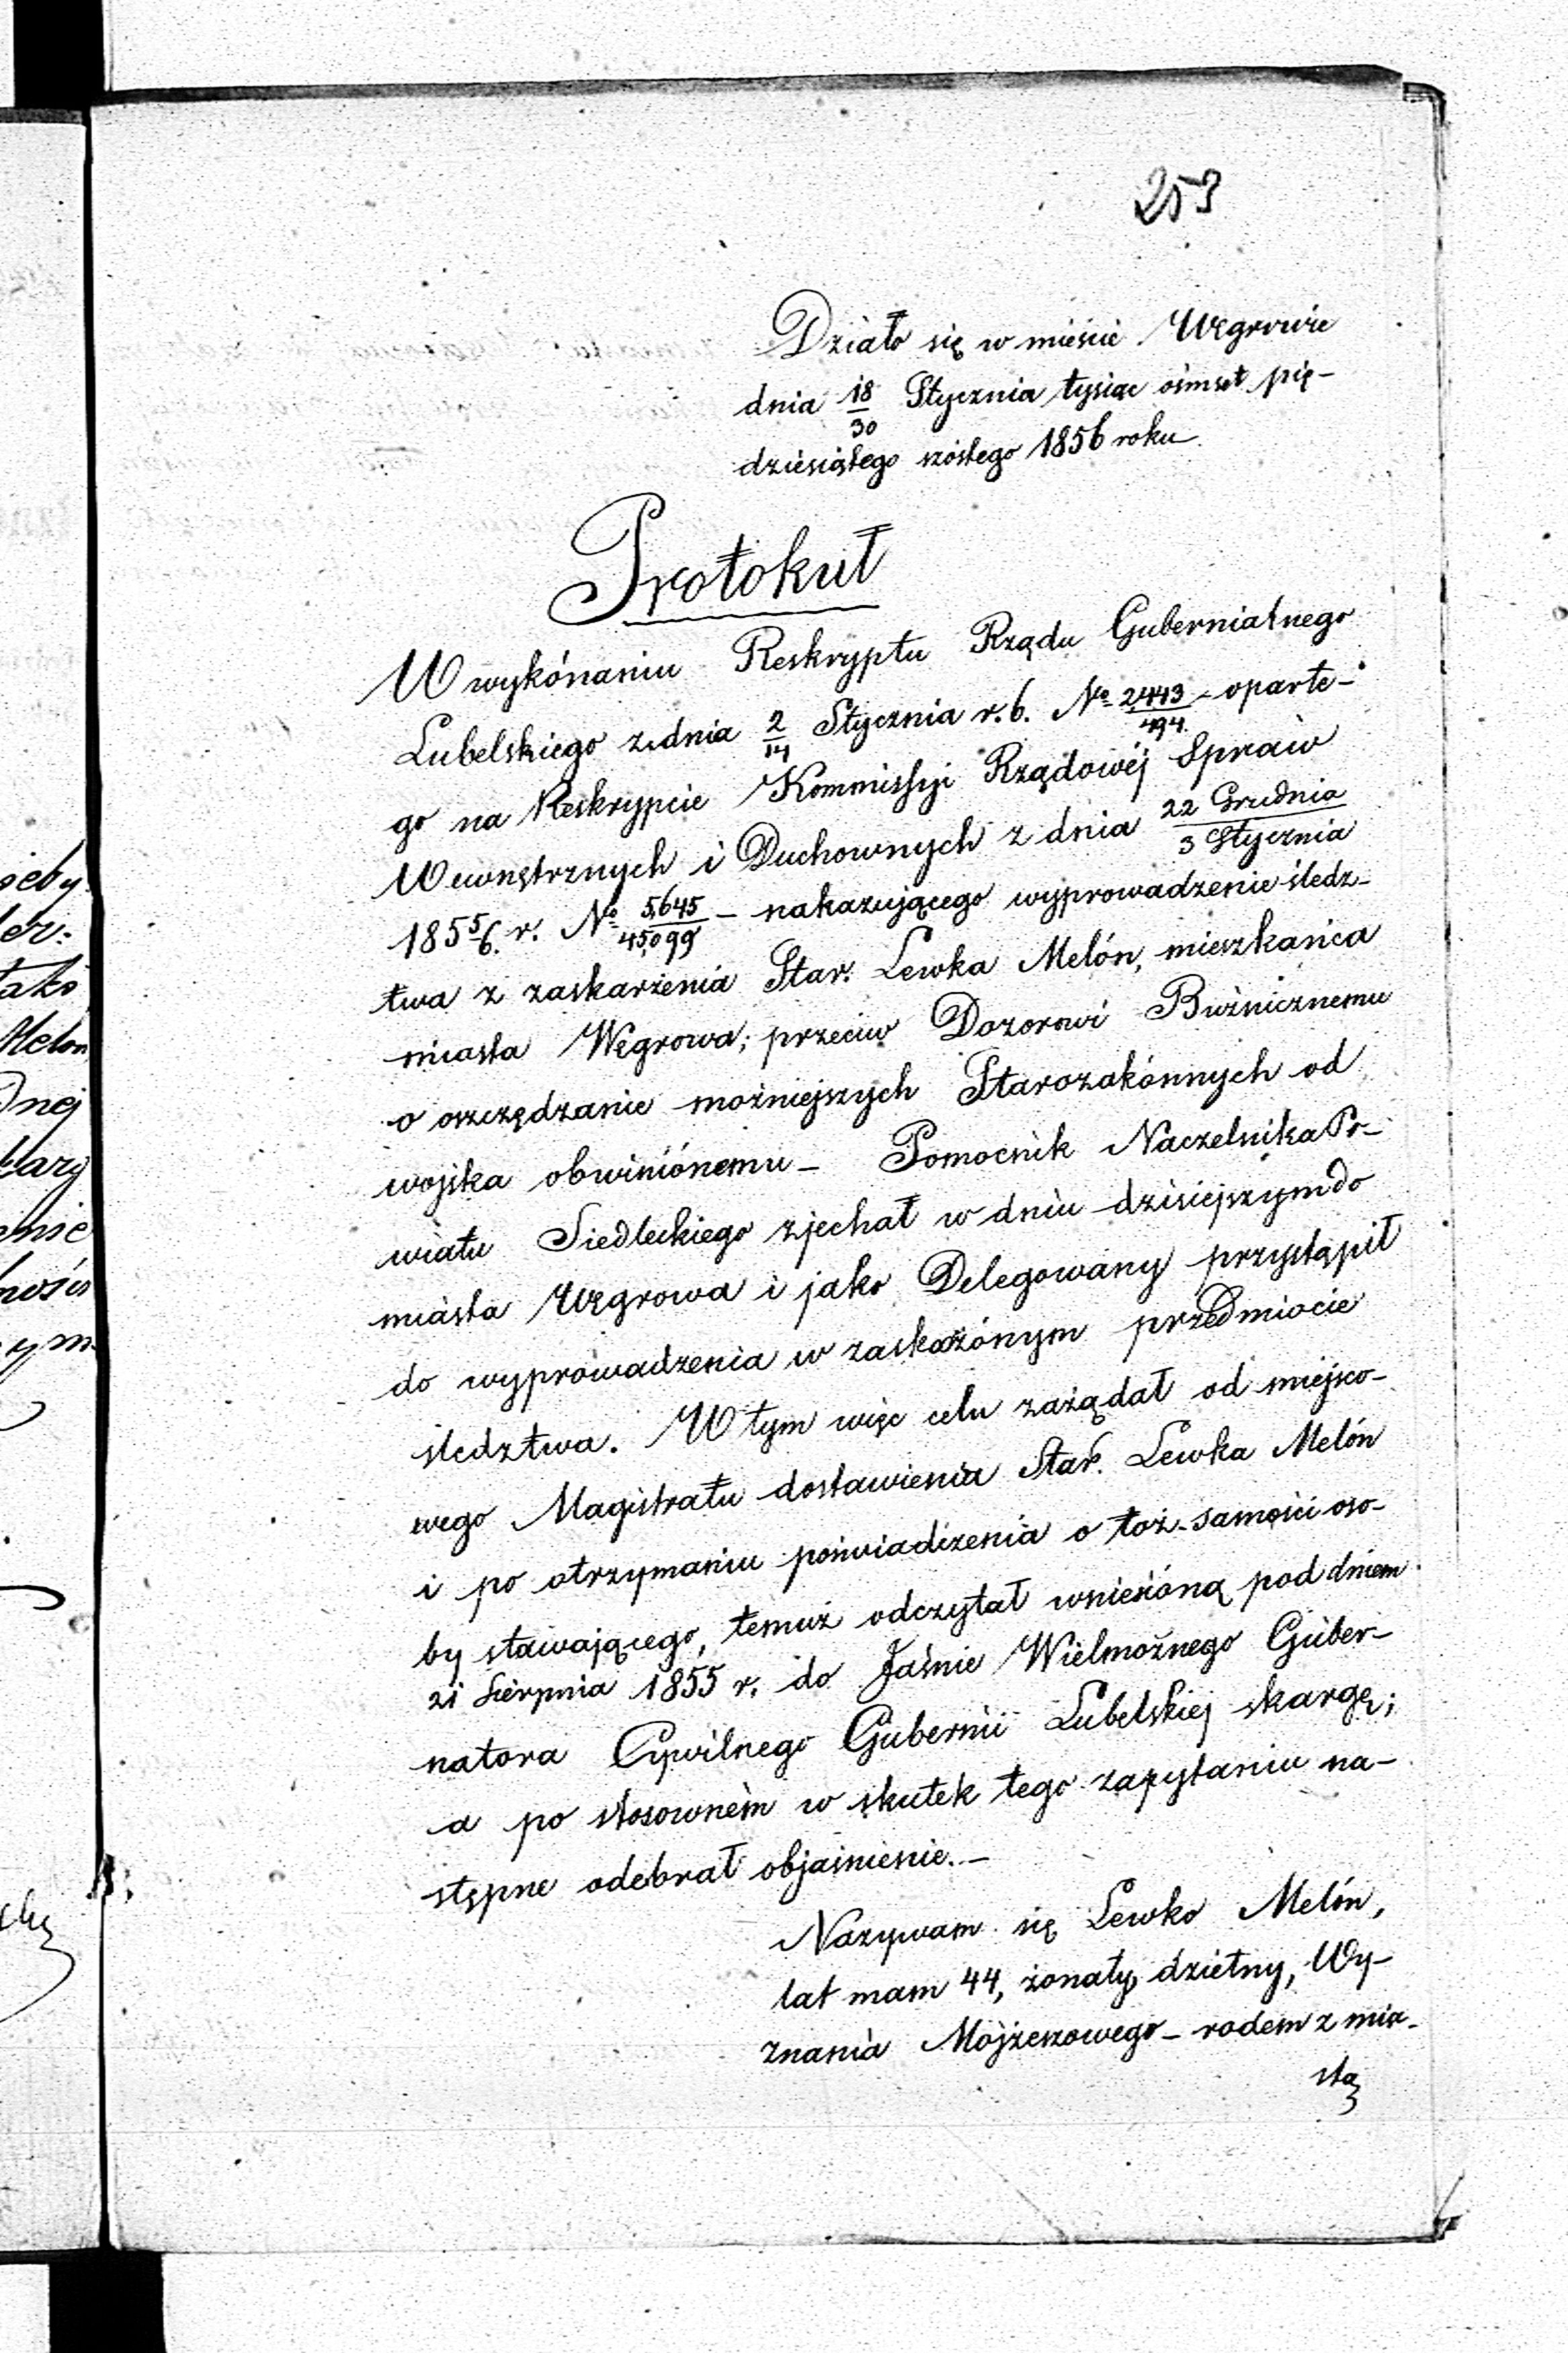 253
Działo się w mieście Węgrowie
dnia 18/30 Stycznia tysiąc ośmset pię-
dziesiątego szóstego 1856 roku
Protokuł
W wykónaniu Reskryptu Rządu Gubernialnego
Lubelskiego z dnia 2/14 Stycznia r. b. No 2443/494 - oparte-
go na Reskrypcie Kommissyi Rządowéj Spraw
Wewnętrznych i Duchownych z dnia 22 Grudnia/3 Stycznia
1855/6 r. No 5,645/45,099 - nakazującego wyprowadzenie śledz-
twa z zaskarżenia Star. Lewka Melón, mieszkańca
miasta Węgrowa; przeciw Dozorowi Bużnicznemu
o oszczędzanie możniejszych Starozakónnych od
wojska obwiniónemu - Pomocnik Naczelnika Po-
wiatu Siedleckiego zjechał w dniu dzisiejszym do
miasta Węgrowa i jako Delegowany przystąpił
do wyprowadzenia w zaskarżónym przedmiocie
śledztwa. W tym więc celu zażądał od miejsco-
wego Magistratu dostawienia Star. Lewka Melón
i po otrzymaniu poświadczenia o toż-samości oso-
by stawającego, temuż odczytał wniesióną pod dniem
21 Sierpnia 1855 r. do Jaśnie Wielmożnego Guber-
natora Cywilnego Gubernii Lubelskiej skargę;
a po stosowném w skutek tego zapytaniu na-
stępne odebrał objaśnienie. -
Nazywam się Lewko Melón,
lat mam 44, żonaty, dzietny, Wy-
znania Mojżeszowego - rodem z mia-
sta